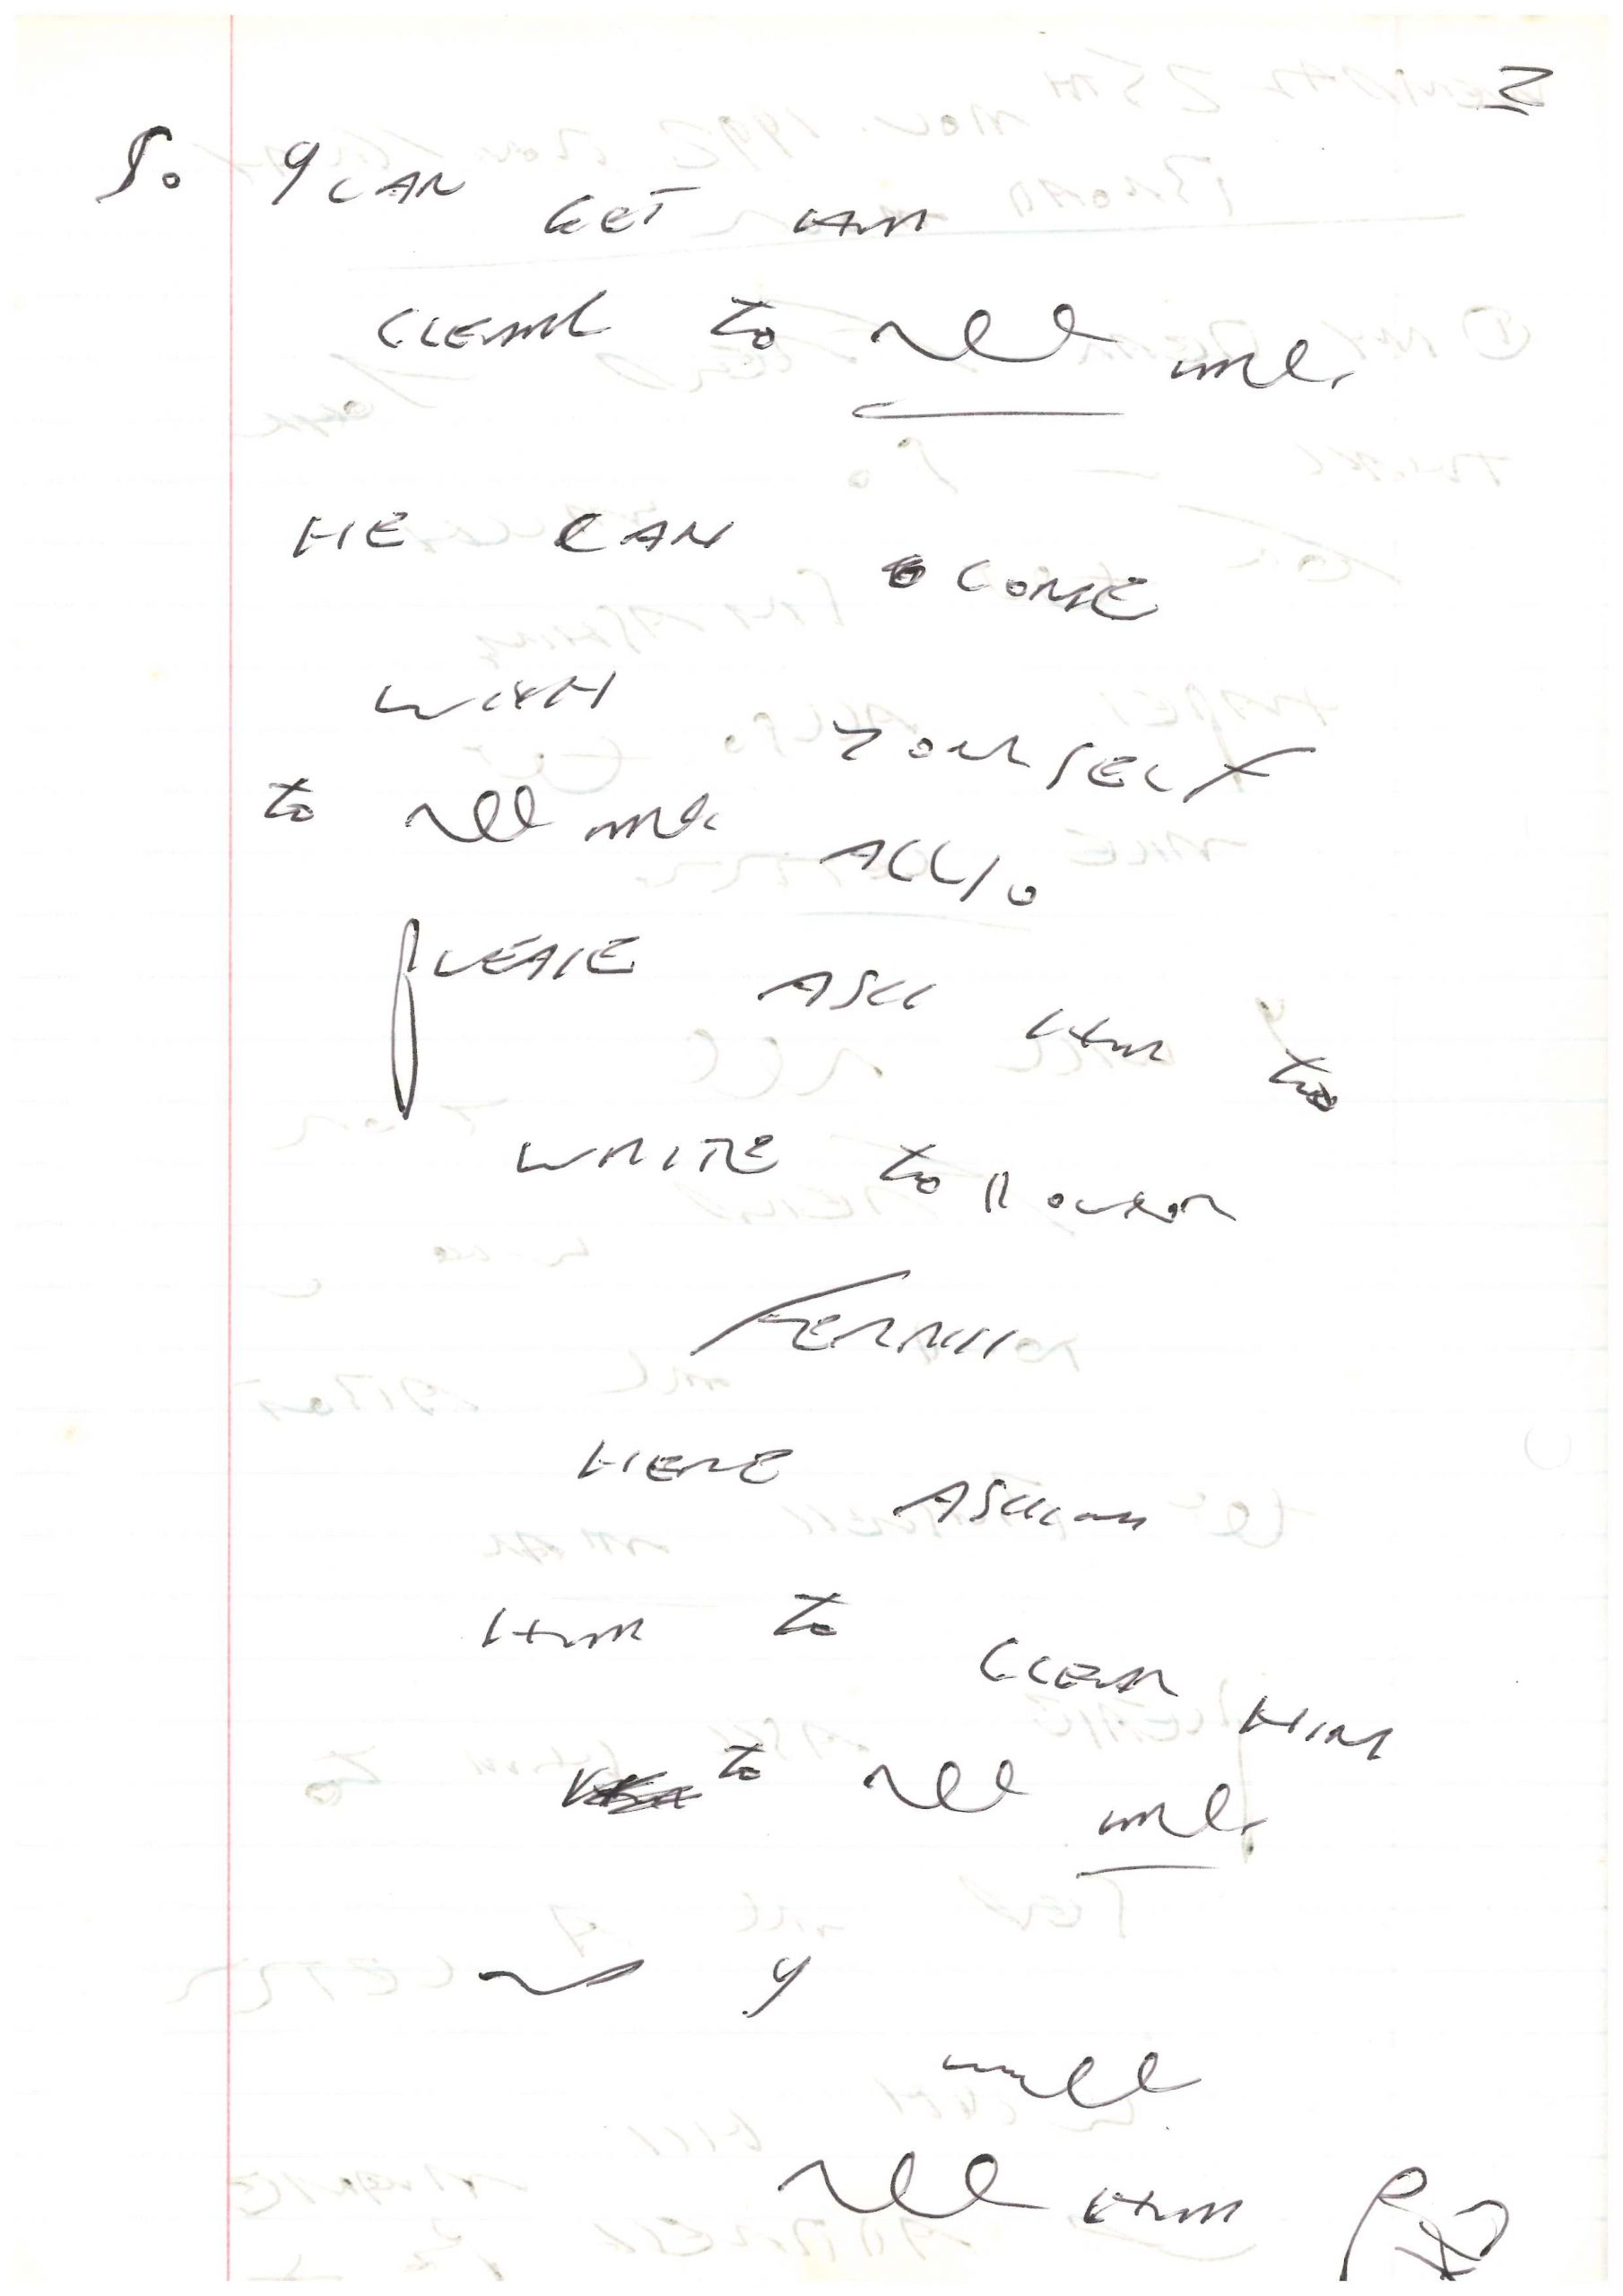 2
So I CAN GET HIM
CLEAR to see me.
HE CAN COME
WITH YOURSELF
to see me ALLSO
PLEASE ASK Him to
WRITE to Doctor
FERRIS
HERE ASKing
Him to CLEAR HIM
to see me.
so I
will
see Him